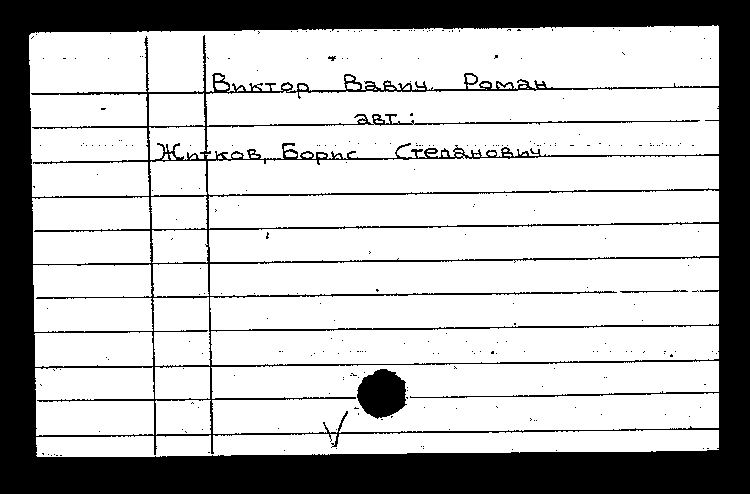 Виктор Вавич. Роман.
авт.:
Житков, Борис Степанович.